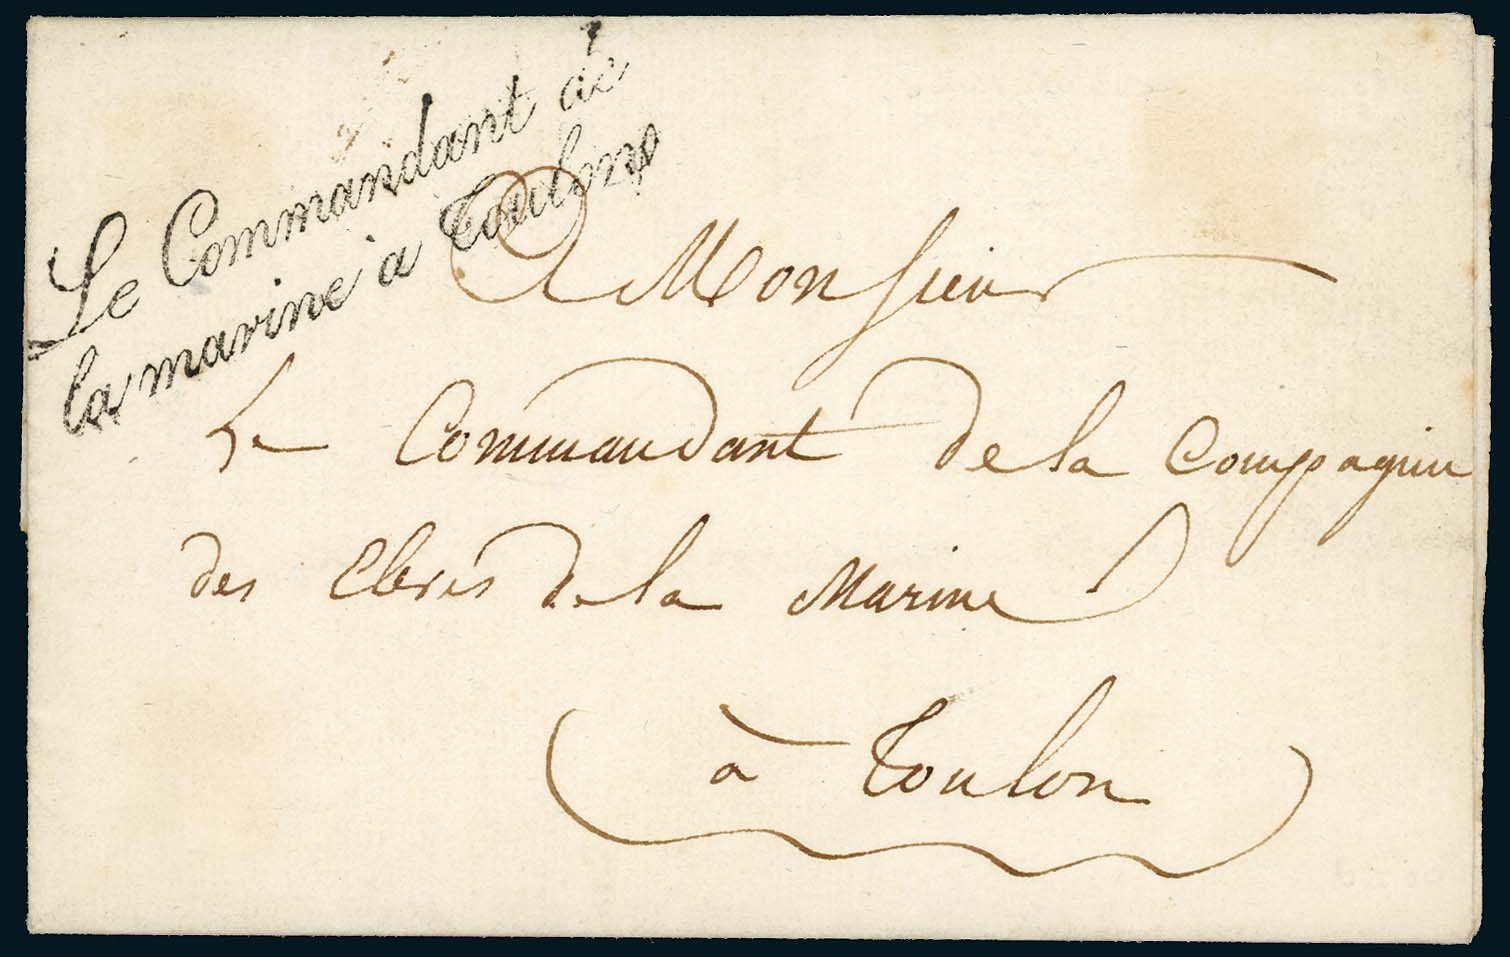 Le Commandant de
la marine à Toulon
A Monsieur
Le Commandant de la Compagnie
des Elèves de la Marine
à Toulon